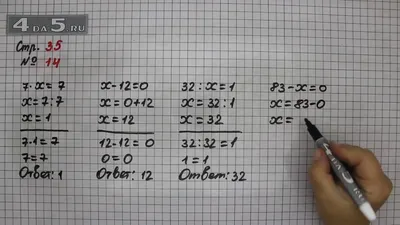 4DA5.RU
Стр. 35
№ 14
7·x=7
x=7:7
x=1
7·1=7
7=7
Ответ: 1
x-12=0
x=0+12
x=12
12-12=0
0=0
Ответ: 12
32:x=1
x=32:1
x=32
32:32=1
1=1
Ответ: 32
83-x=0
x=83-0
x=